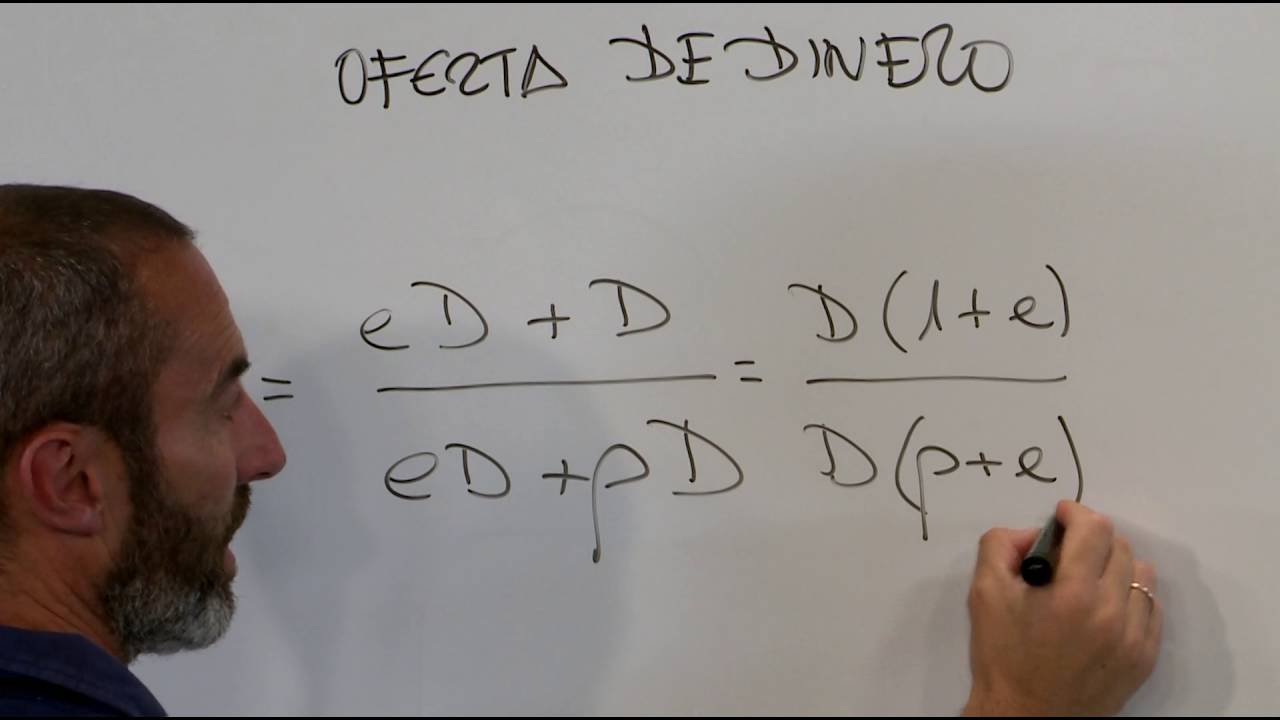 OFERTA DE DINERO
= eD + D / eD + ρD = D(1+e) / D(ρ+e)